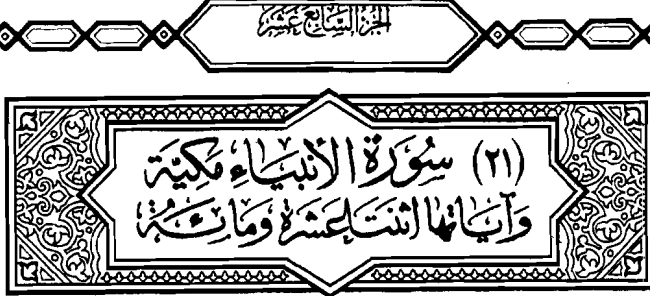 الجزء السابع عشر
(٢١) سُورَةُ الأنبيَاءِ مَكِيَّة
وَآيَاتها اثنتا عَشرَة وَمَائة